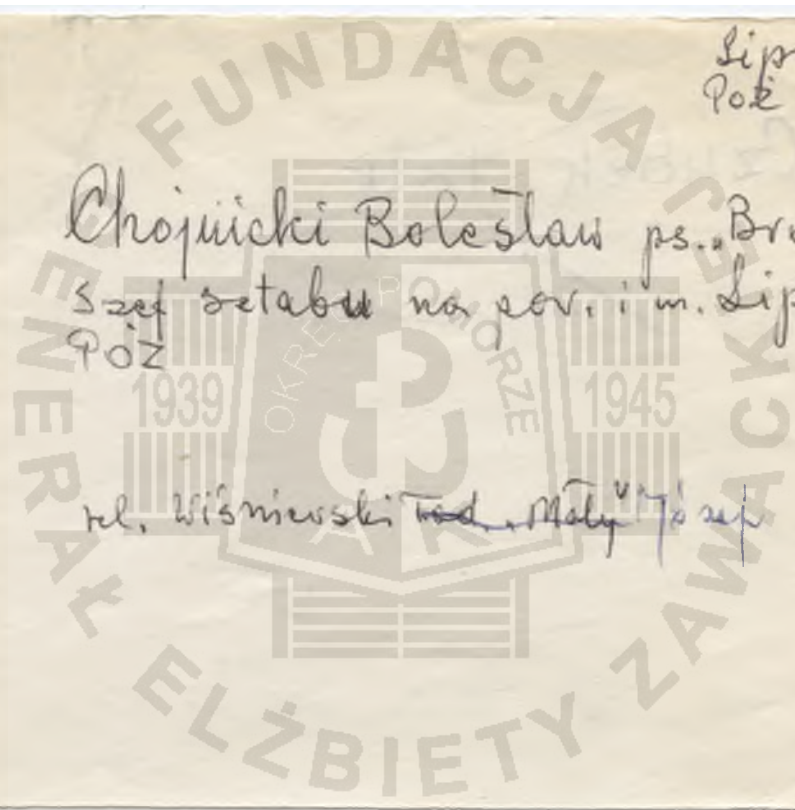 Lip
Poż
Chojnicki Bolesław ps. „Br
szef sztabu na pow. i m. Lip
POŻ
rel. Wiśniewski Tad. „Mały” Józef
FUNDACJA GENERAŁ ELŻBIETY ZAWACKIEJ
OKRĘG POMORZE
1939
1945
AK